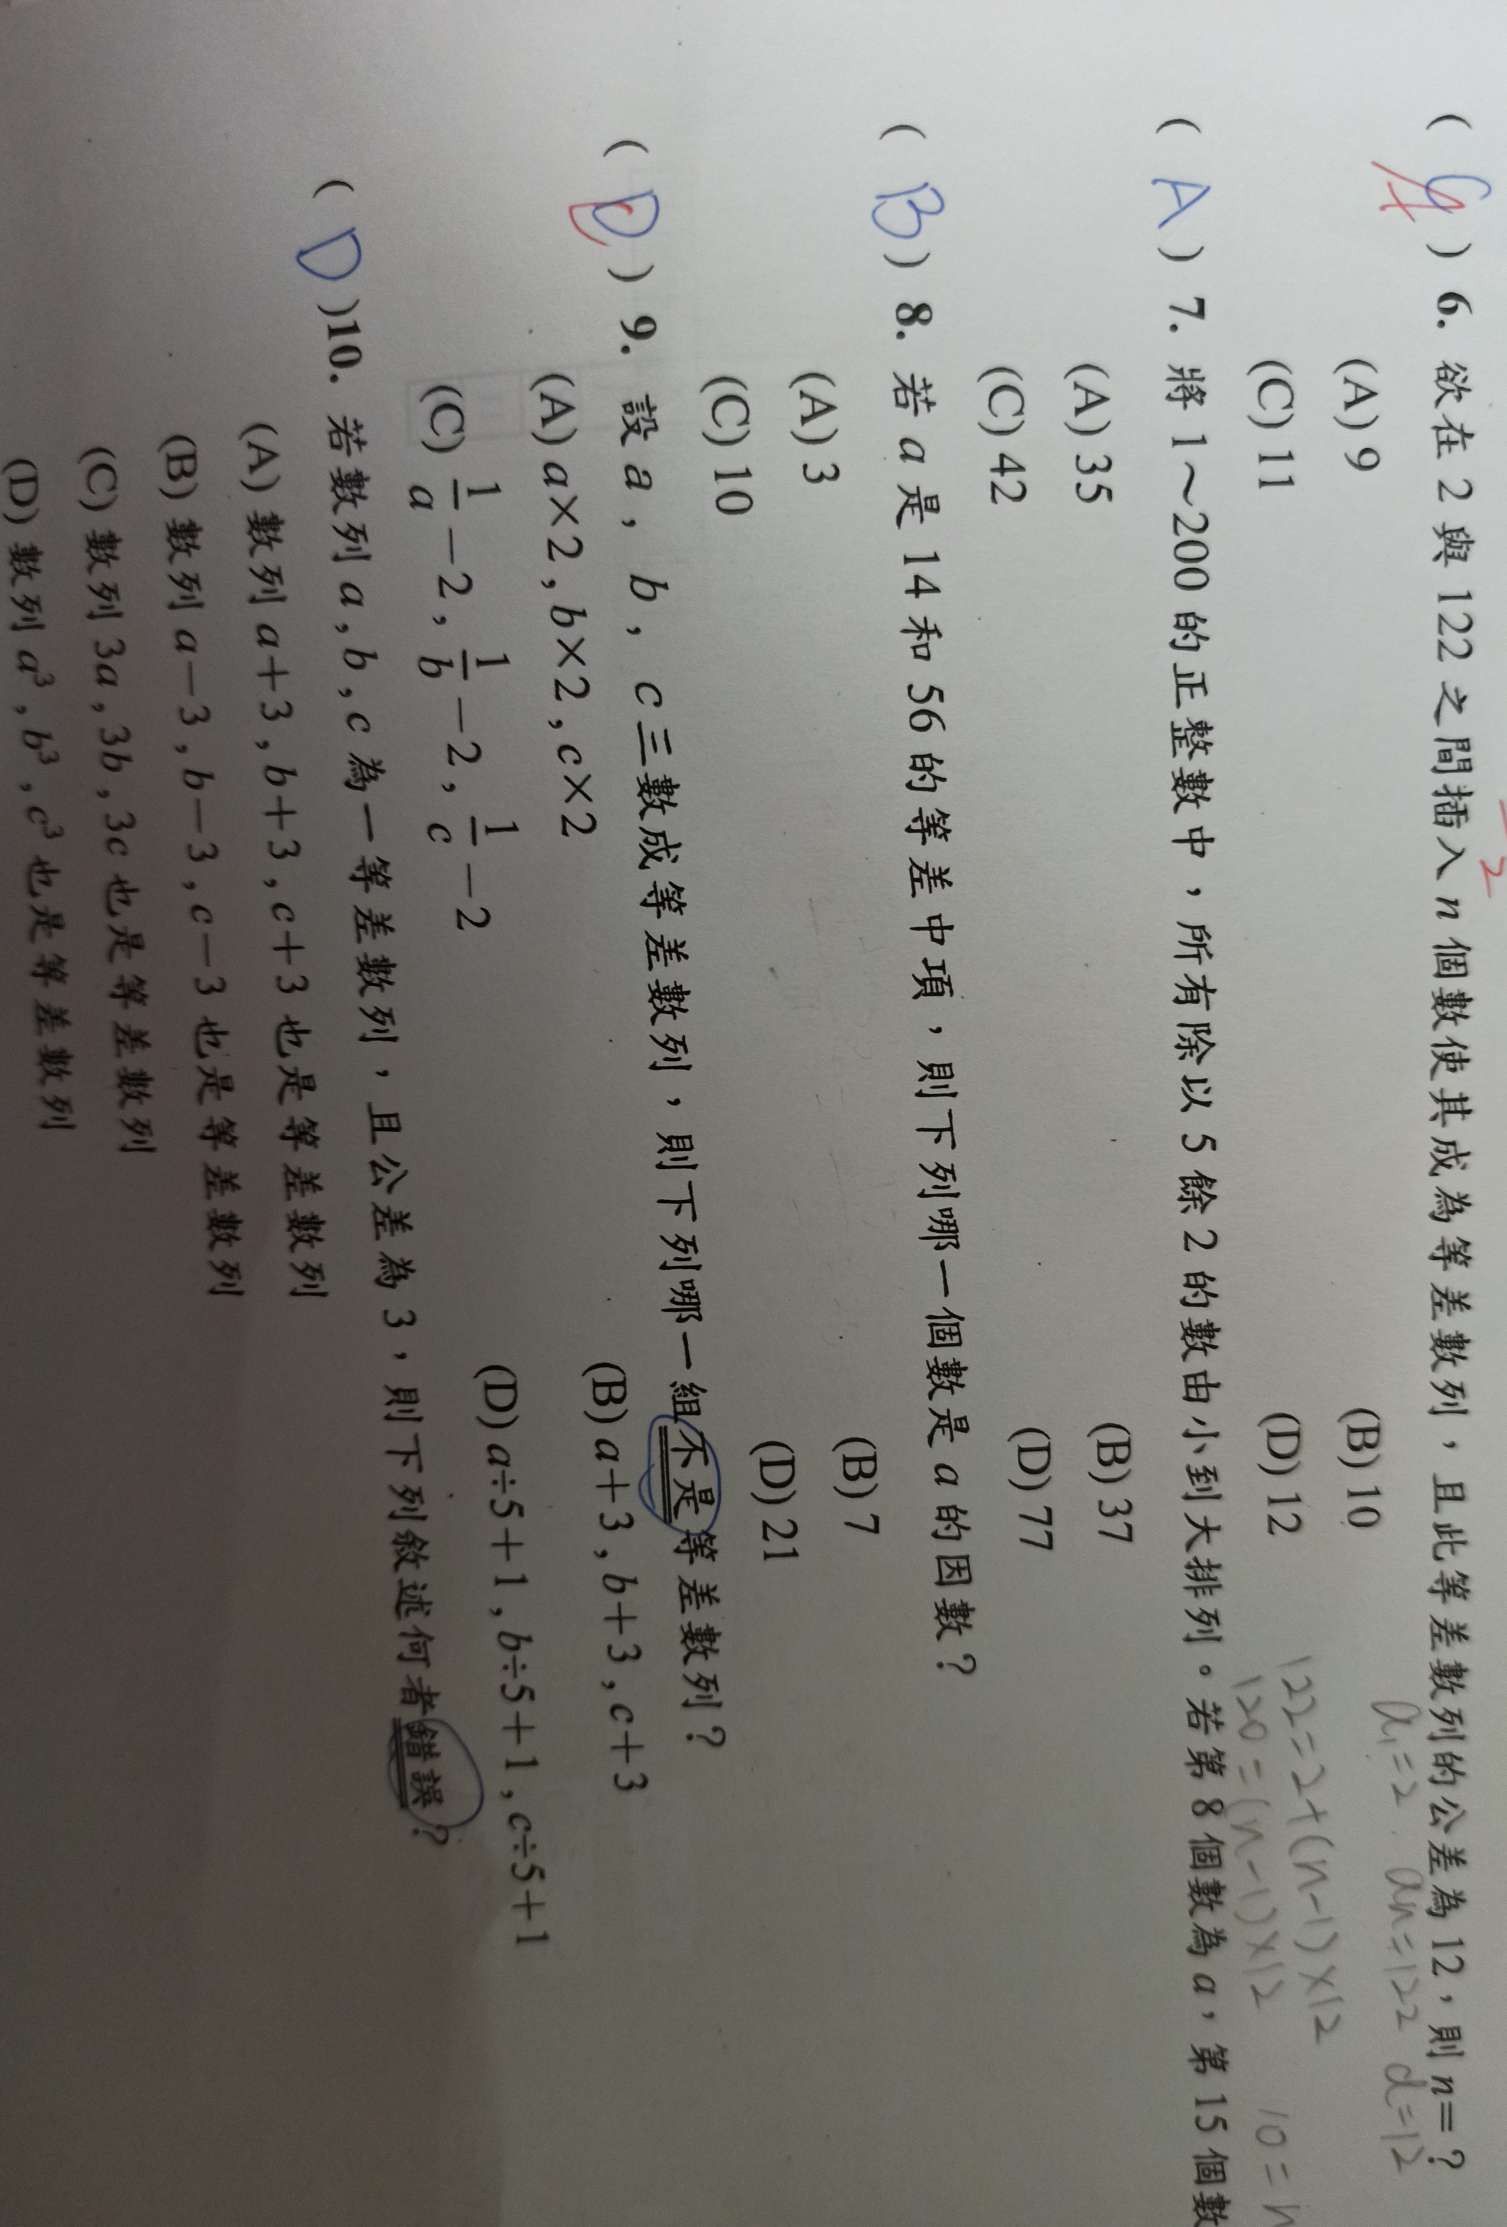 2
( ) 6. 欲在 2 與 122 之間插入 n 個數使其成為等差數列，且此等差數列的公差為 12，則 n＝？
(A) 9 (B) 10
a₁=2 an=122 d=12
(C) 11 (D) 12
122=2+(n-1)×12
120=(n-1)×12 10=n
( A ) 7. 將 1～200 的正整數中，所有除以 5 餘 2 的數由小到大排列。若第 8 個數為 a，第 15 個數
(A) 35 (B) 37
(C) 42 (D) 77
( B ) 8. 若 a 是 14 和 56 的等差中項，則下列哪一個數是 a 的因數？
(A) 3 (B) 7
(C) 10 (D) 21
( D C ) 9. 設 a，b，c 三數成等差數列，則下列哪一組不是等差數列？
(A) a×2 , b×2 , c×2 (B) a＋3 , b＋3 , c＋3
(C) 1/a－2 , 1/b－2 , 1/c－2 (D) a÷5＋1 , b÷5＋1 , c÷5＋1
( D )10. 若數列 a , b , c 為一等差數列，且公差為 3，則下列敘述何者錯誤？
(A) 數列 a＋3 , b＋3 , c＋3 也是等差數列
(B) 數列 a－3 , b－3 , c－3 也是等差數列
(C) 數列 3a , 3b , 3c 也是等差數列
(D) 數列 a³ , b³ , c³ 也是等差數列